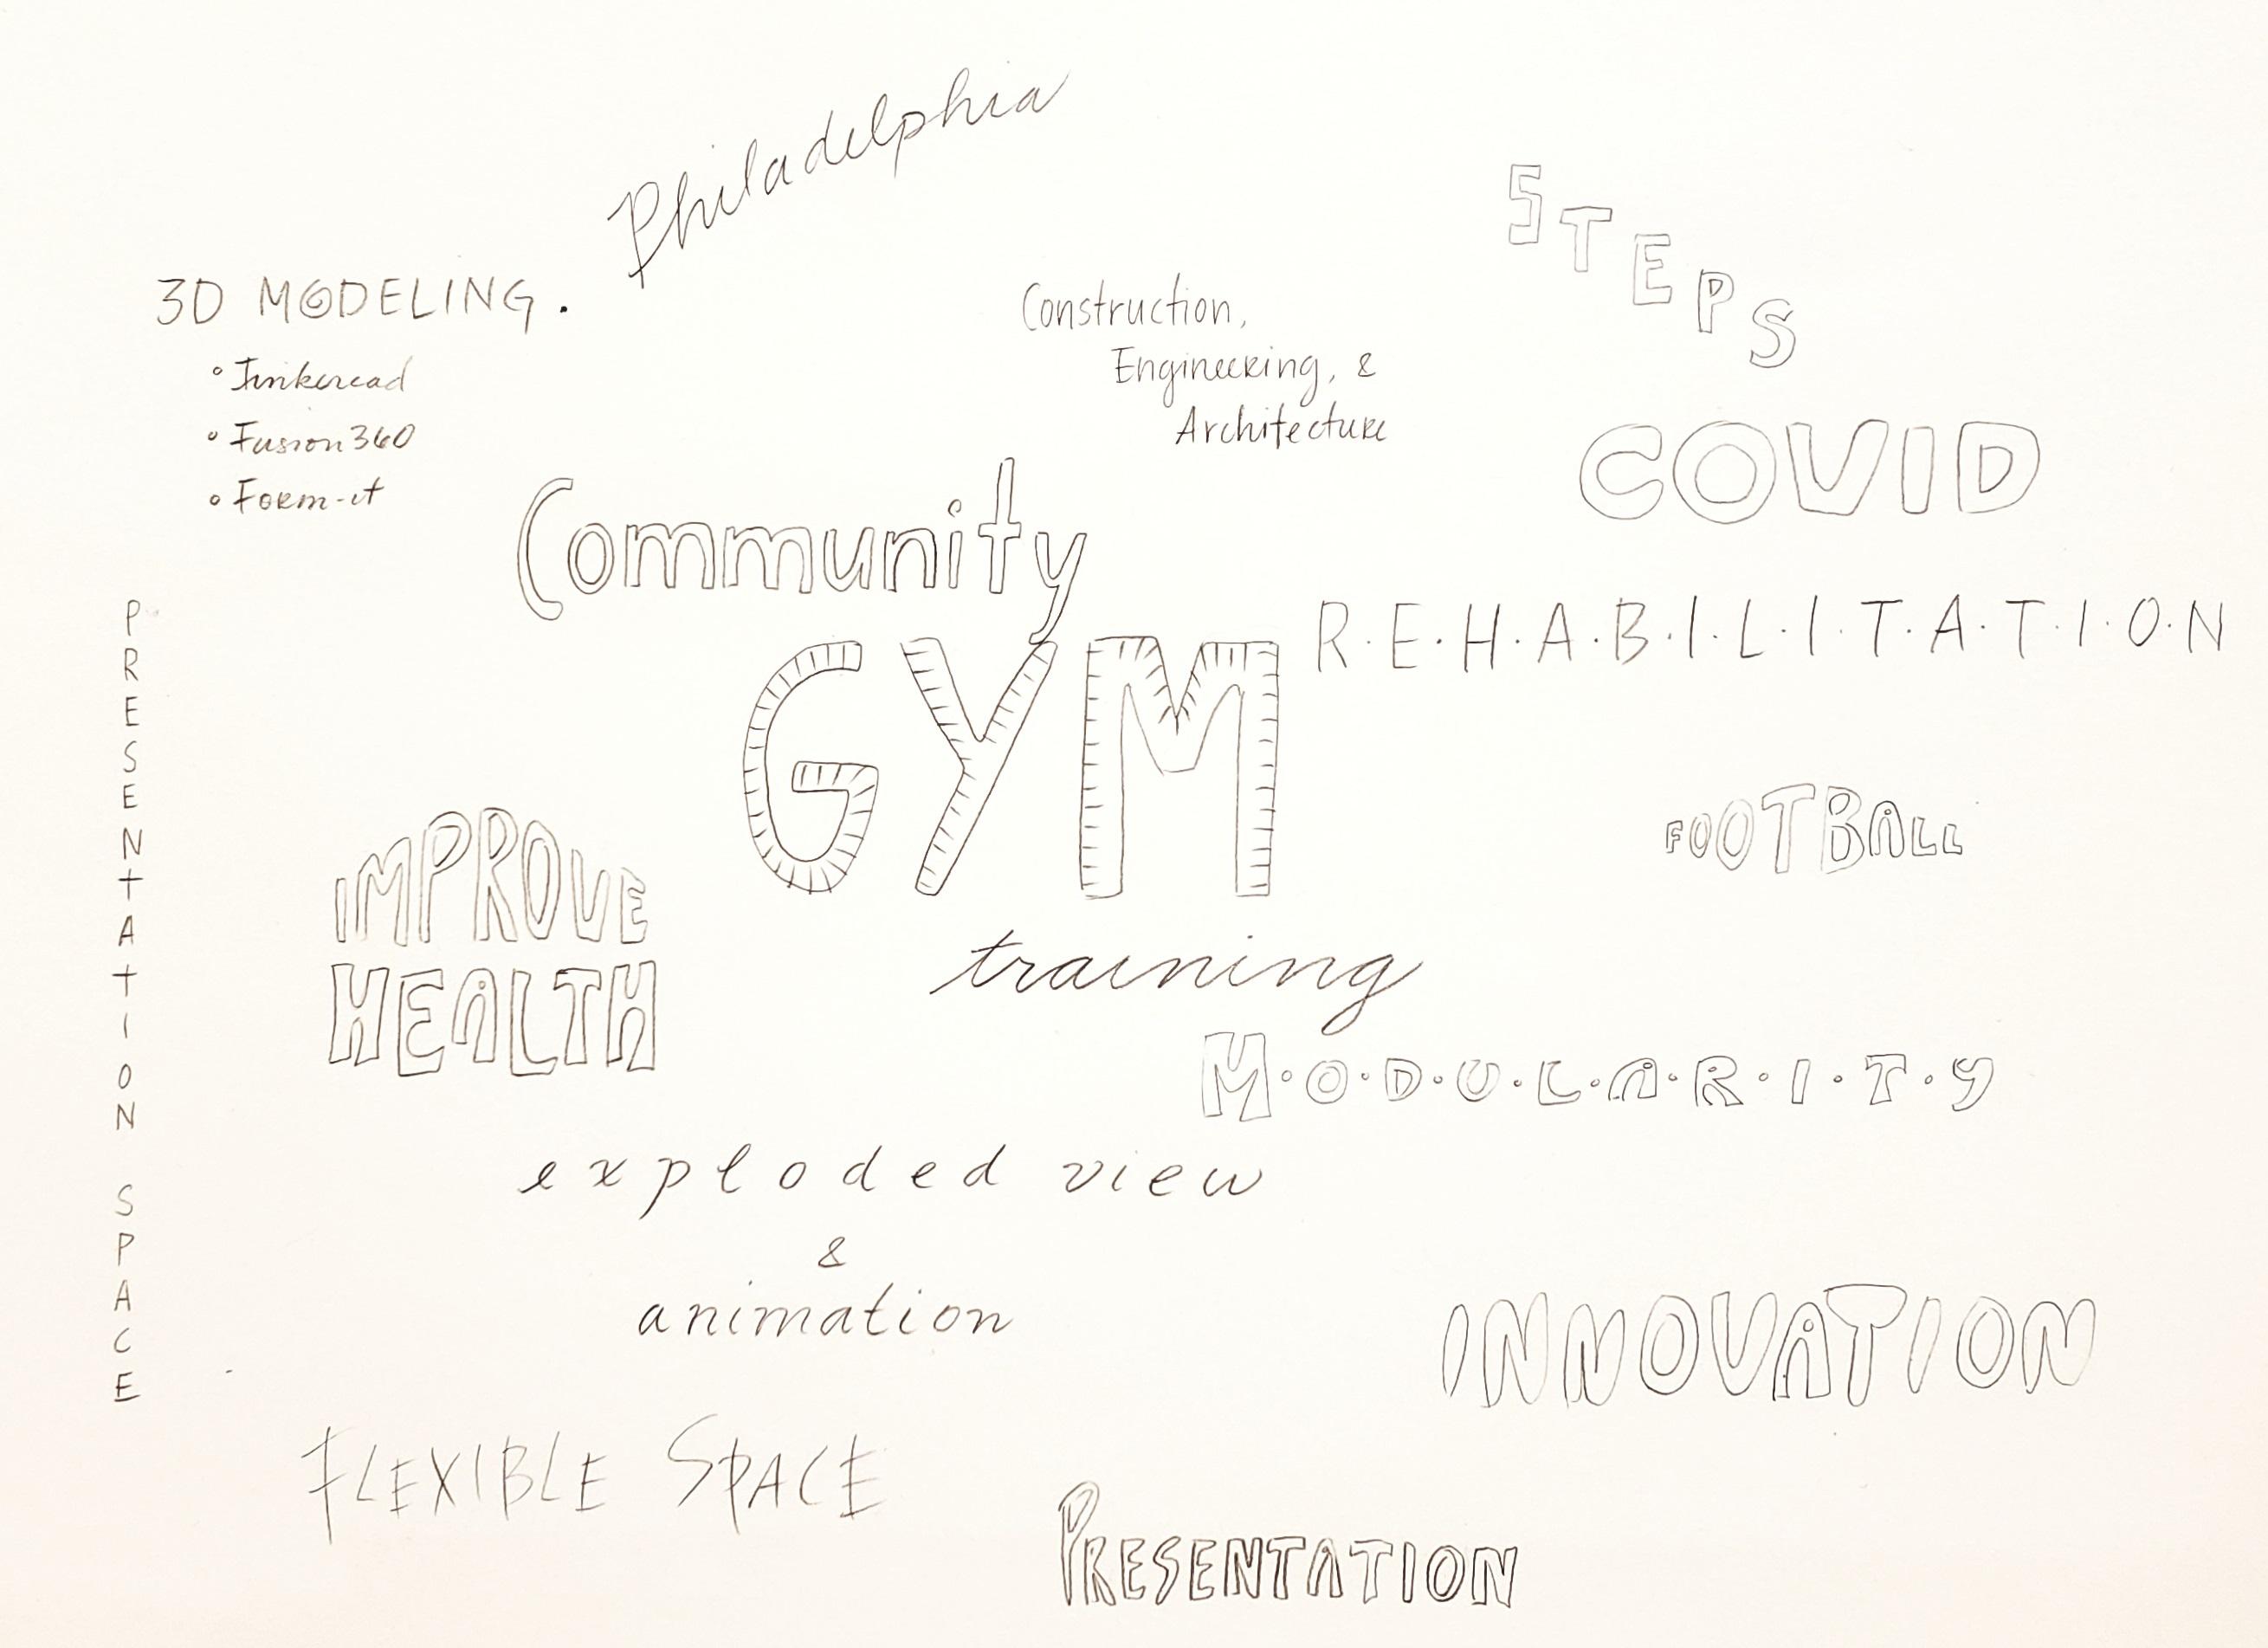 Philadelphia
STEPS
3D MODELING.
• Tinkercad
• Fusion360
• Form-it
Construction,
Engineering, &
Architecture
COVID
Community
GYM
R·E·H·A·B·I·L·I·T·A·T·I·O·N
PRESENTATION SPACE
IMPROVE
HEALTH
FOOTBALL
training
M·O·D·U·L·A·R·I·T·Y
exploded view
&
animation
INNOVATION
FLEXIBLE SPACE
PRESENTATION